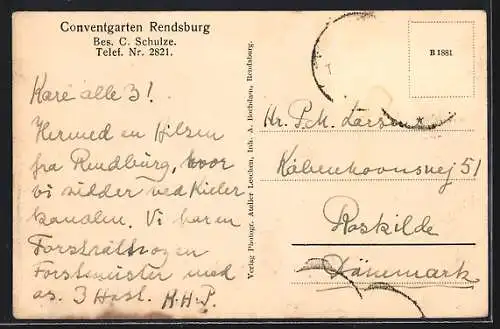 Conventgarten Rendsburg
Bes. C. Schulze.
Telef. Nr. 2821.
Kære alle 3!
Hermed en Hilsen
fra Rendburg, hvor
vi sidder ved Kieler
kanalen. Vi har en
Forstmester med
os. 3 H.H.P.
Verlag Photogr. Atelier Leschem, Inh. A. Bethdorn, Rendsburg.
B 1881
T
Hr. P. M. Larsen
Københavnsvej 51
Roskilde
Dänemark